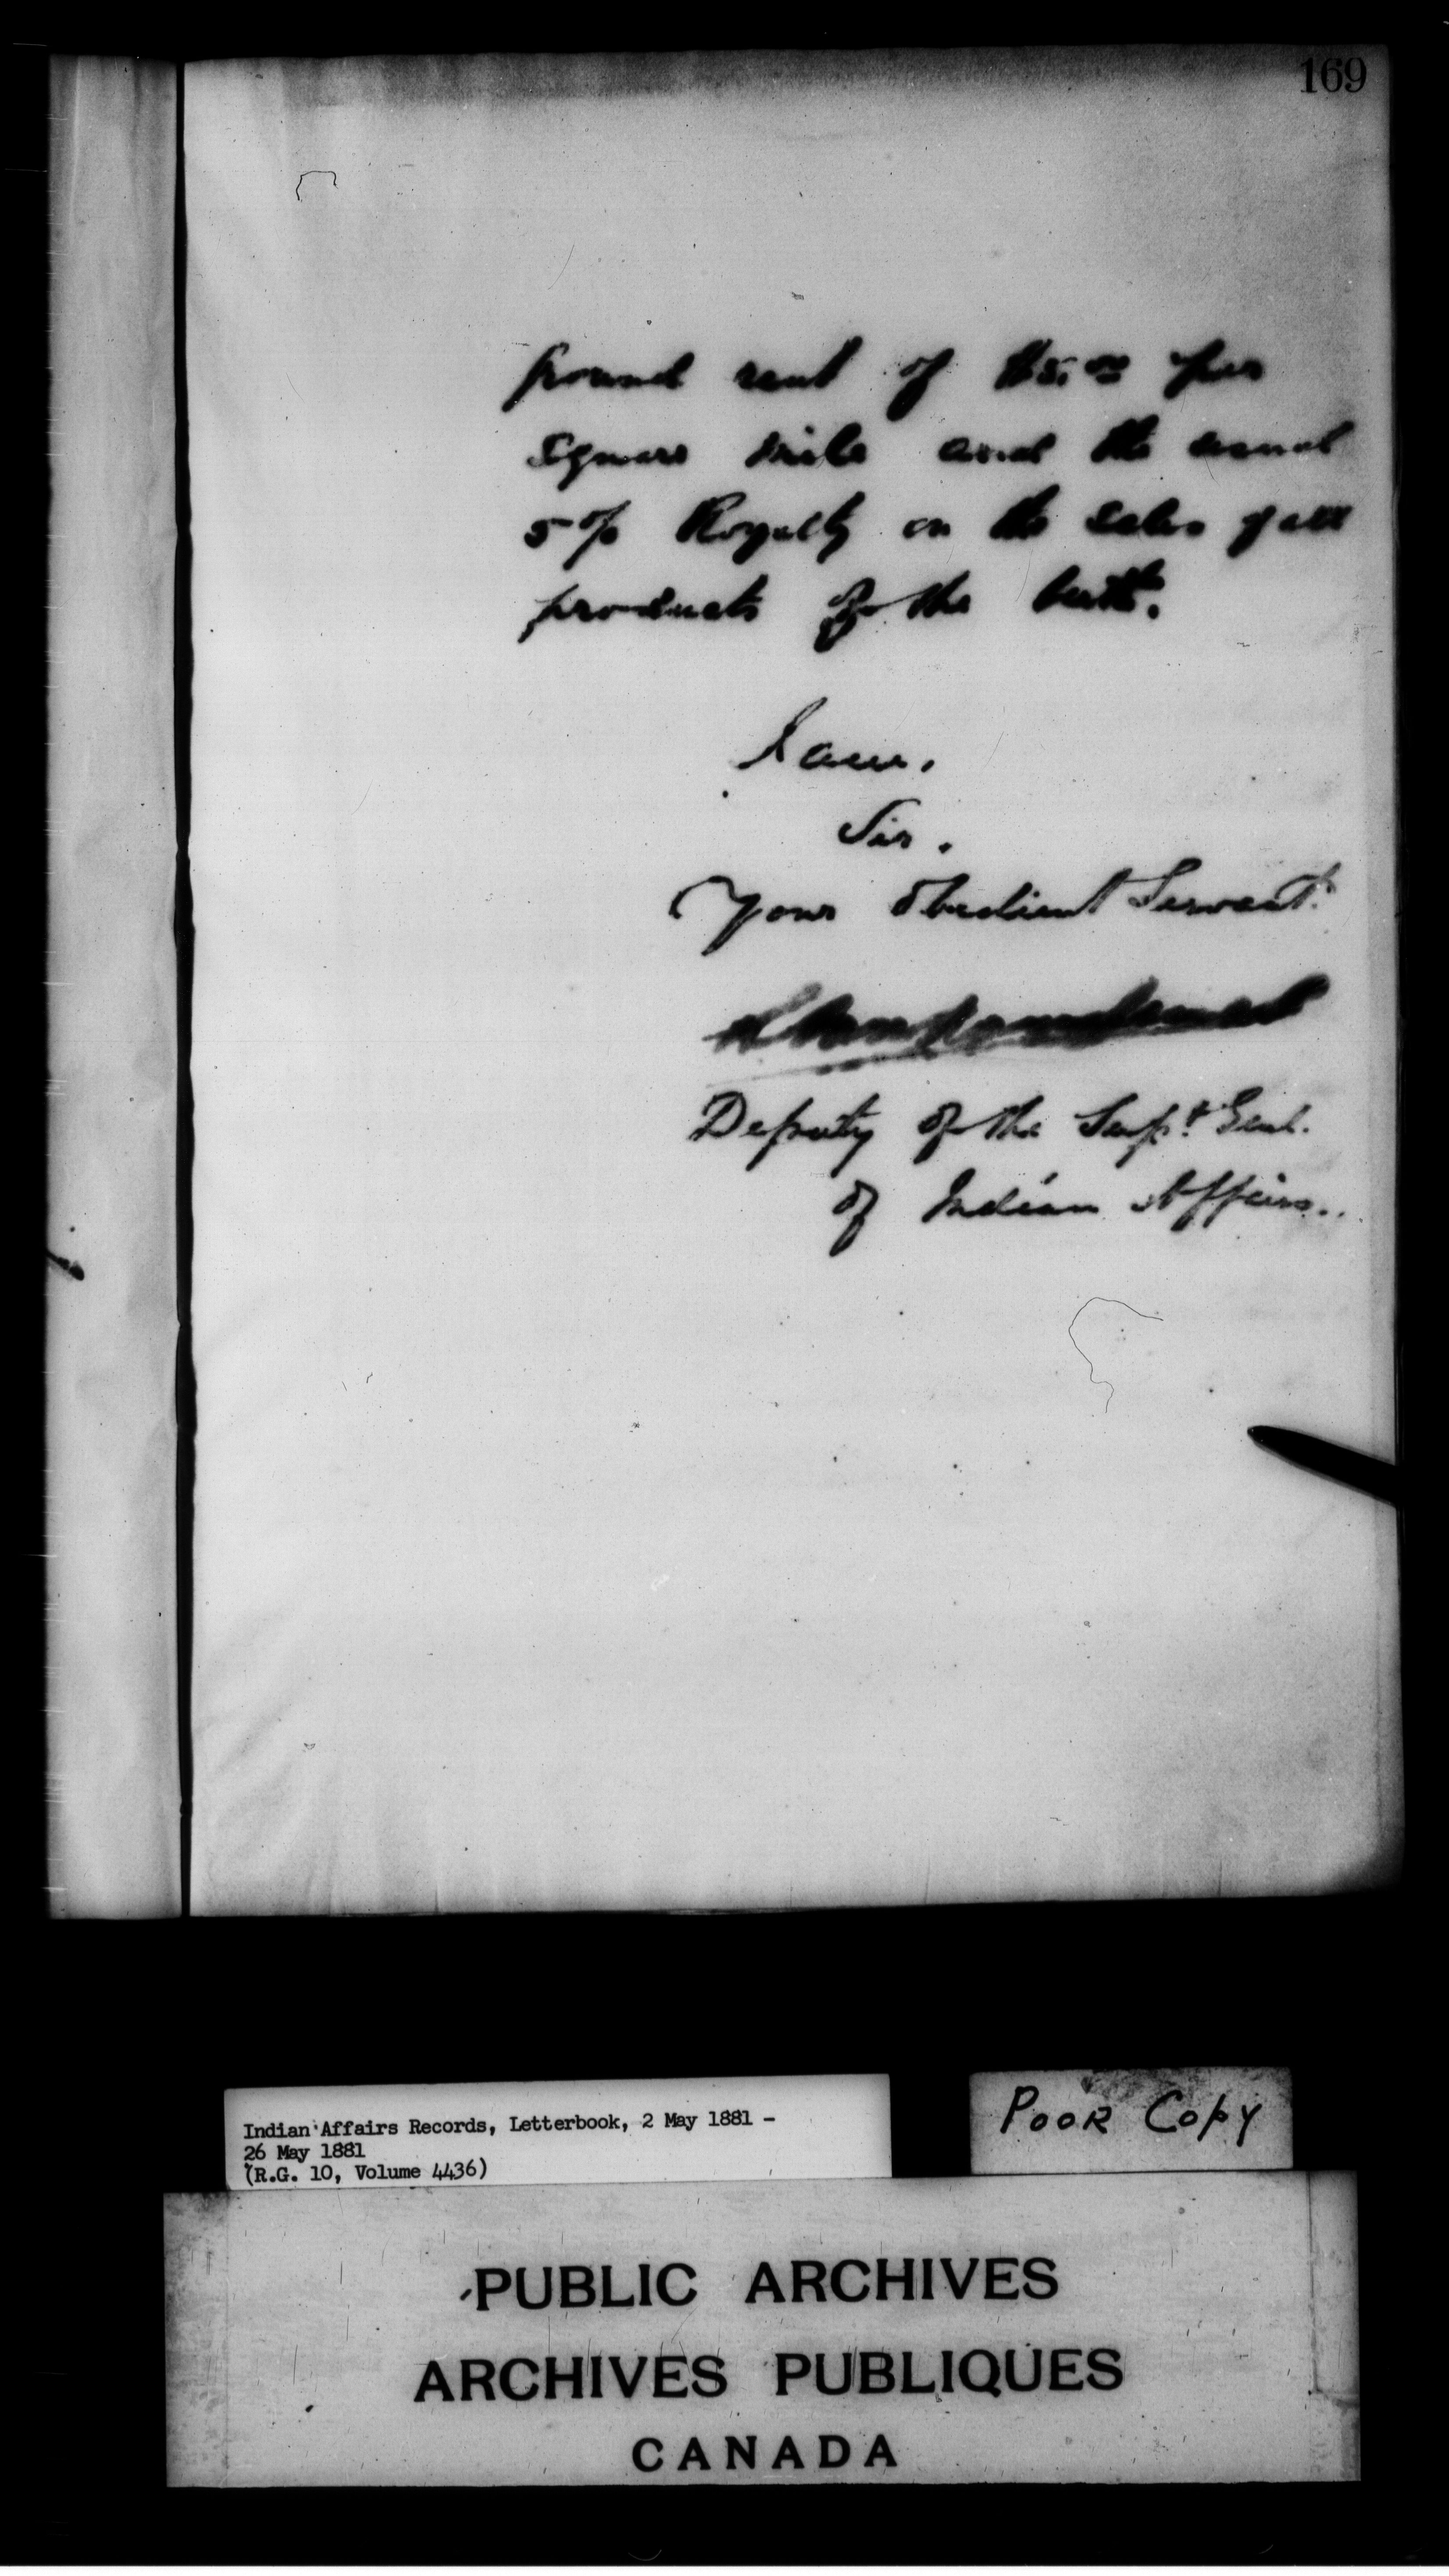 169
ground rent of $5.00 per
square mile and the usual
5% Royalty on the sales of all
products of the berth.
I am,
Sir.
Your Obedient Servant.
Deputy of the Supt. Genl.
of Indian Affairs..
Indian Affairs Records, Letterbook, 2 May 1881 -
26 May 1881
(R.G. 10, Volume 4436)
POOR COPY
PUBLIC ARCHIVES
ARCHIVES PUBLIQUES
CANADA